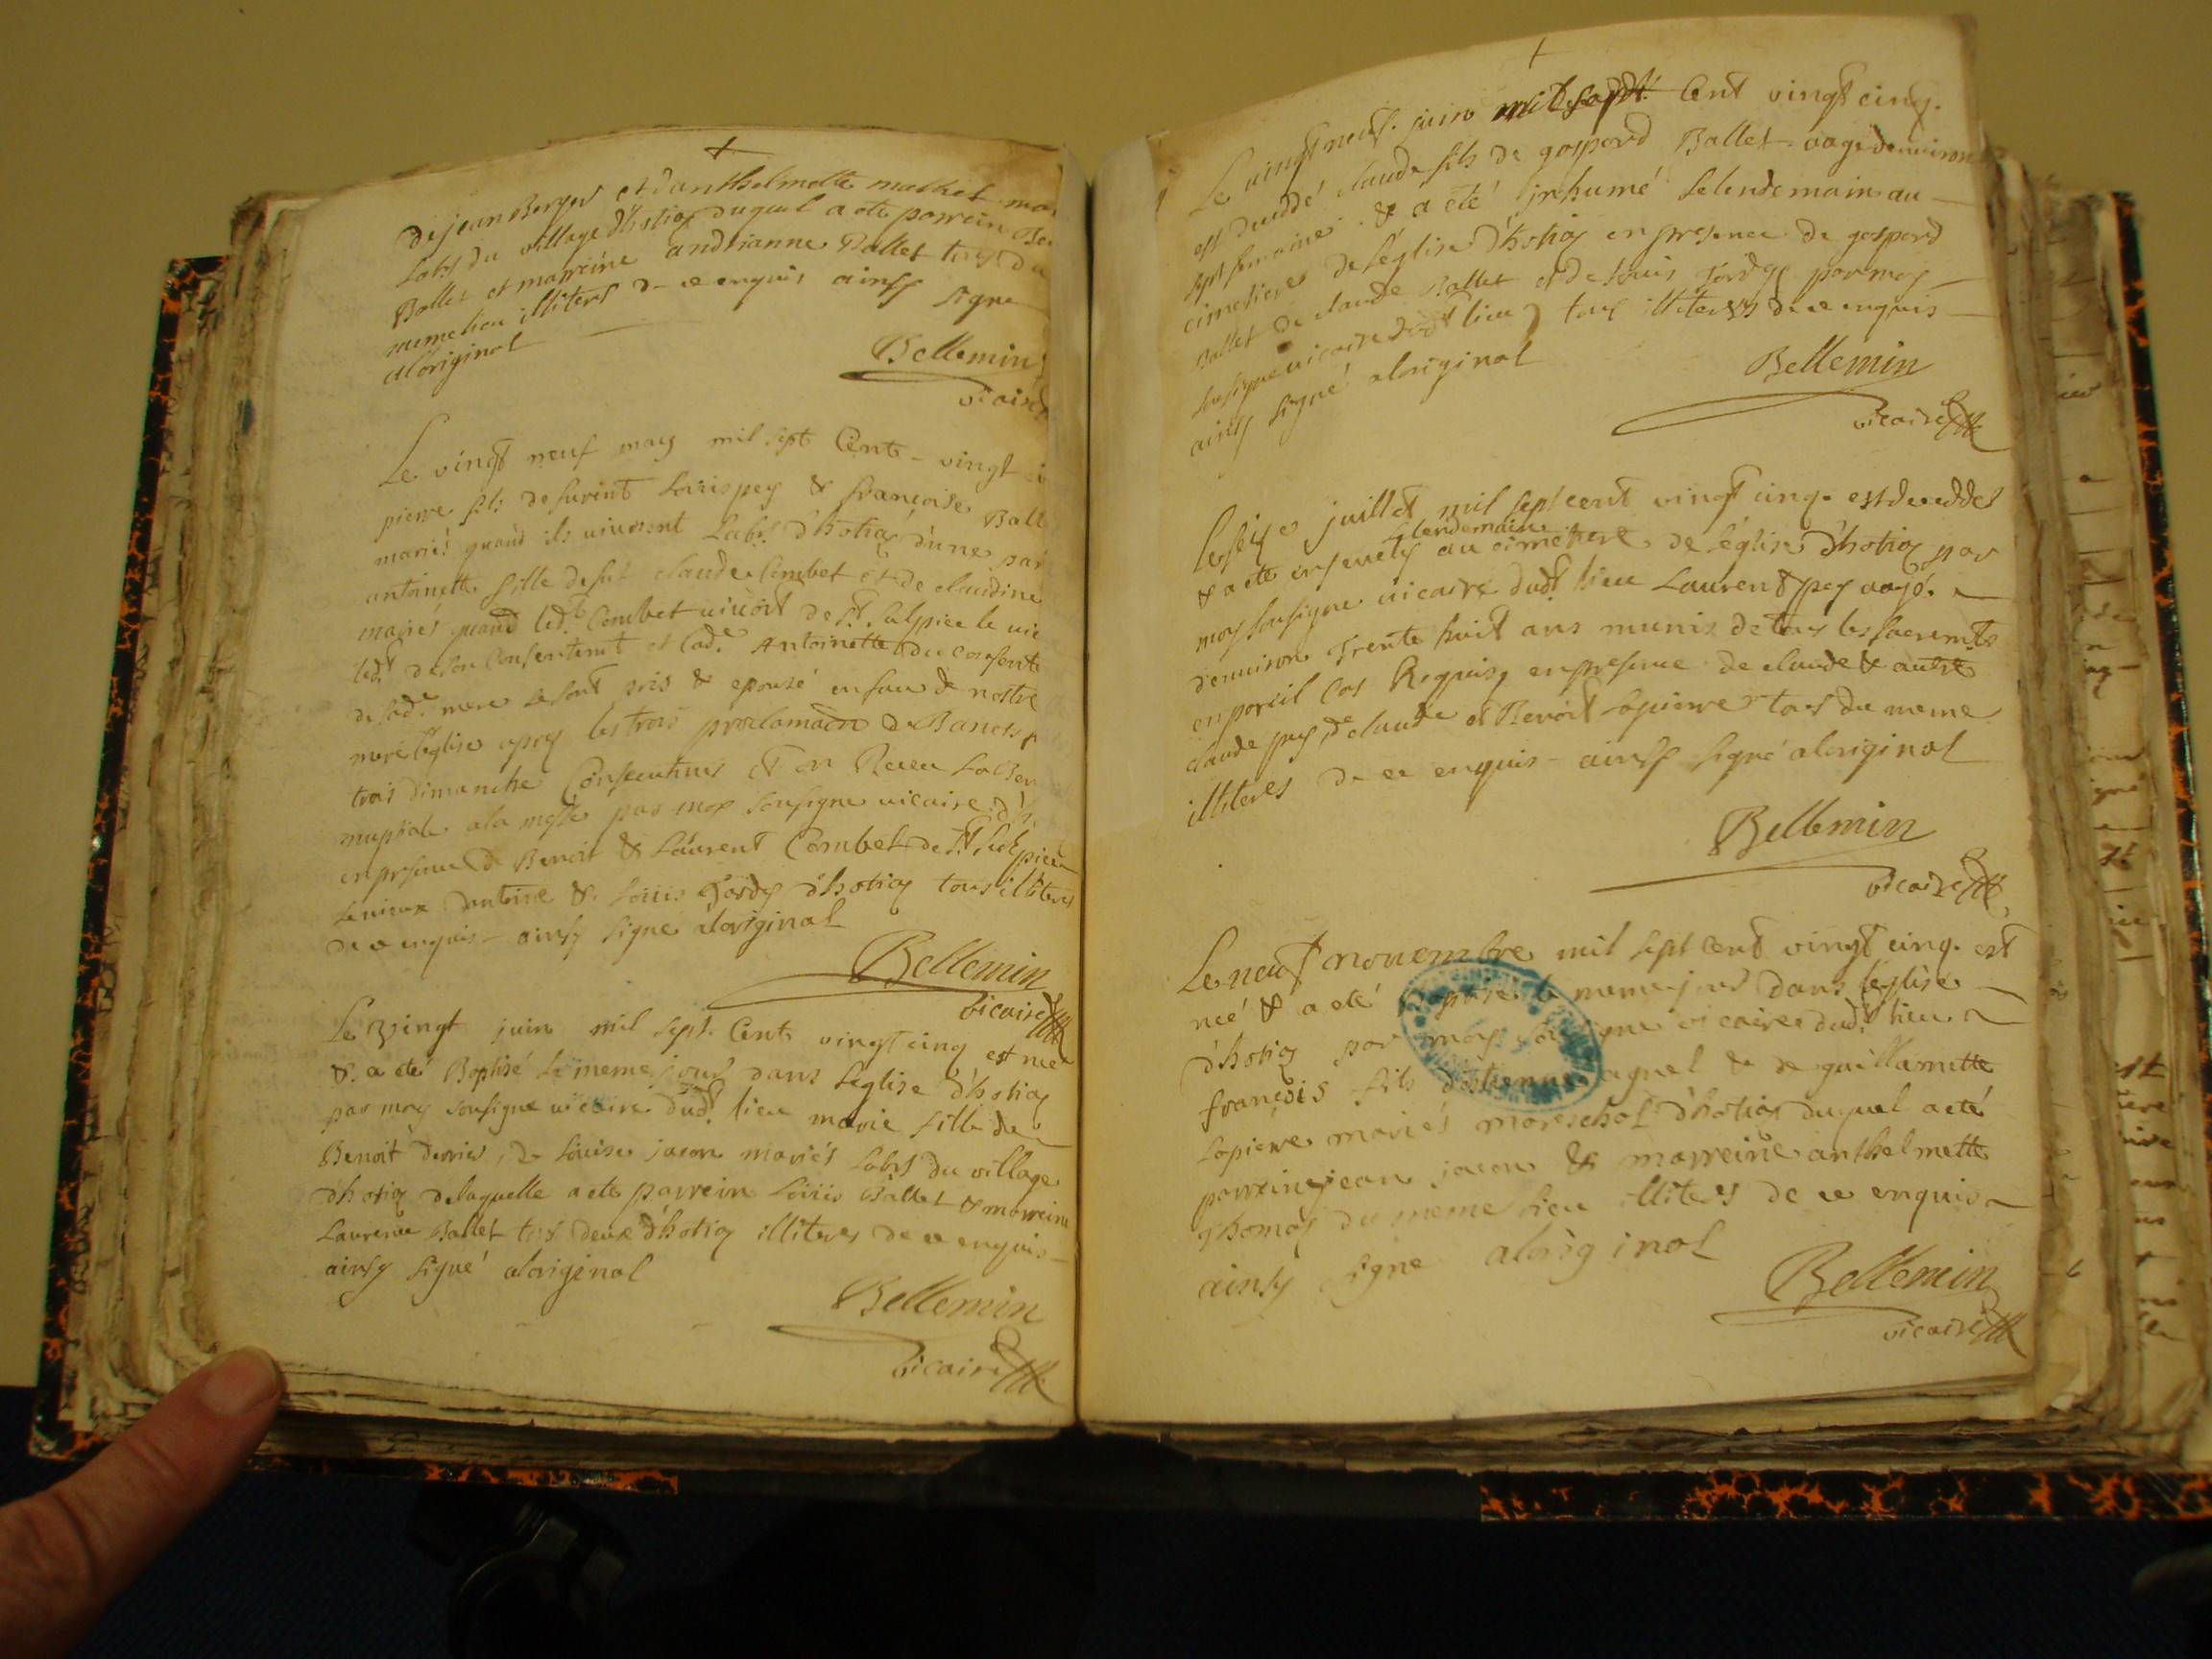 de jean Berger et danthelmette mathet mar
labrs du village dhotiaz duquel a ete parrein Be
Ballet et marreine andrianne Ballet tous du
meme lieu illiteres de ce enquis ainsy signe
aloriginal
Bellemin
vicaire
Le vingt neuf may mil sept Cent vingt ci
pierre fils de furent Loüis pey & françoise Ball
mariés quand ils vivoient Labrs d'hotiaz d'une par
antoinette fille de fut claude Combet et de claudine
mariés quand ledt Combet vivoit de st Sulpice le vie
ledt de son Consentemt et lade Antoinette du consente
de lade mere se sont pris & epousé en face de nostre
mere léglise apres les trois proclamaon de Bancs p
trois dimanche Consecutives et on Receu la Ben
nuptiale ala messe par moy sousigne vicaire d'h
en presence de Benoit & Laurent Combet de st Sulpice
le vieux dantoine & Loüis Jordy d'hotiaz tous illiteres
de ce enquis ainsy signe aloriginal
Bellemin
vicaire
Le vingt juin mil sept Cent vingt cinq est née
& a eté Baptisé le meme jour dans léglise d'hotiaz
par moy sousigne vicaire dudt lieu marie fille de
Benoit & de Loüise jacon mariés Labrs du village
d'hotiaz de laquelle a ete parrein Loüis Ballet & marreine
Laurence Ballet tous deux d'hotiaz illiteres de ce enquis
ainsy signé aloriginal
Bellemin
vicaire
Le vingt neuf juin mil sept Cent vingt cinq
est deceddé claude fils de gaspard Ballet aagé denviron
sept semaine & a eté inhumé le lendemain au
cimetiere de léglise d'hotiaz en presence de gaspard
Ballet de claude Ballet et de Louis Jordy par moy
sousigne vicaire dudt lieu tous illiteres de ce enquis
ainsy signé aloriginal
Bellemin
vicaire
Le seize juillet mil sept cent vingt cinq est deceddet
lendemain
& a ete ensevely au cimetiere de léglise d'hotiaz par
moy sousigne vicaire dudt lieu Laurent pey aagé
denviron Trente huit ans munis de tous les sacremts
en pareil Cas Requis en presence de claude & autre
claude pey de claude et Benoit Lapierre tous du meme
illiteres de ce enquis ainsy signé aloriginal
Bellemin
vicaire
Le neuf novembre mil sept cent vingt cinq est
née & a eté Baptise le meme jour dans léglise
d'hotiaz par moy sousigne vicaire dudt lieu
françois fils d'estienne agnel & de guillamette
Lapierre mariés mareschal d'hotiaz duquel a eté
parrein jean jacon & marreine anthelmette
Thomas du meme lieu illiteres de ce enquis
ainsy signe aloriginal
Bellemin
vicaire